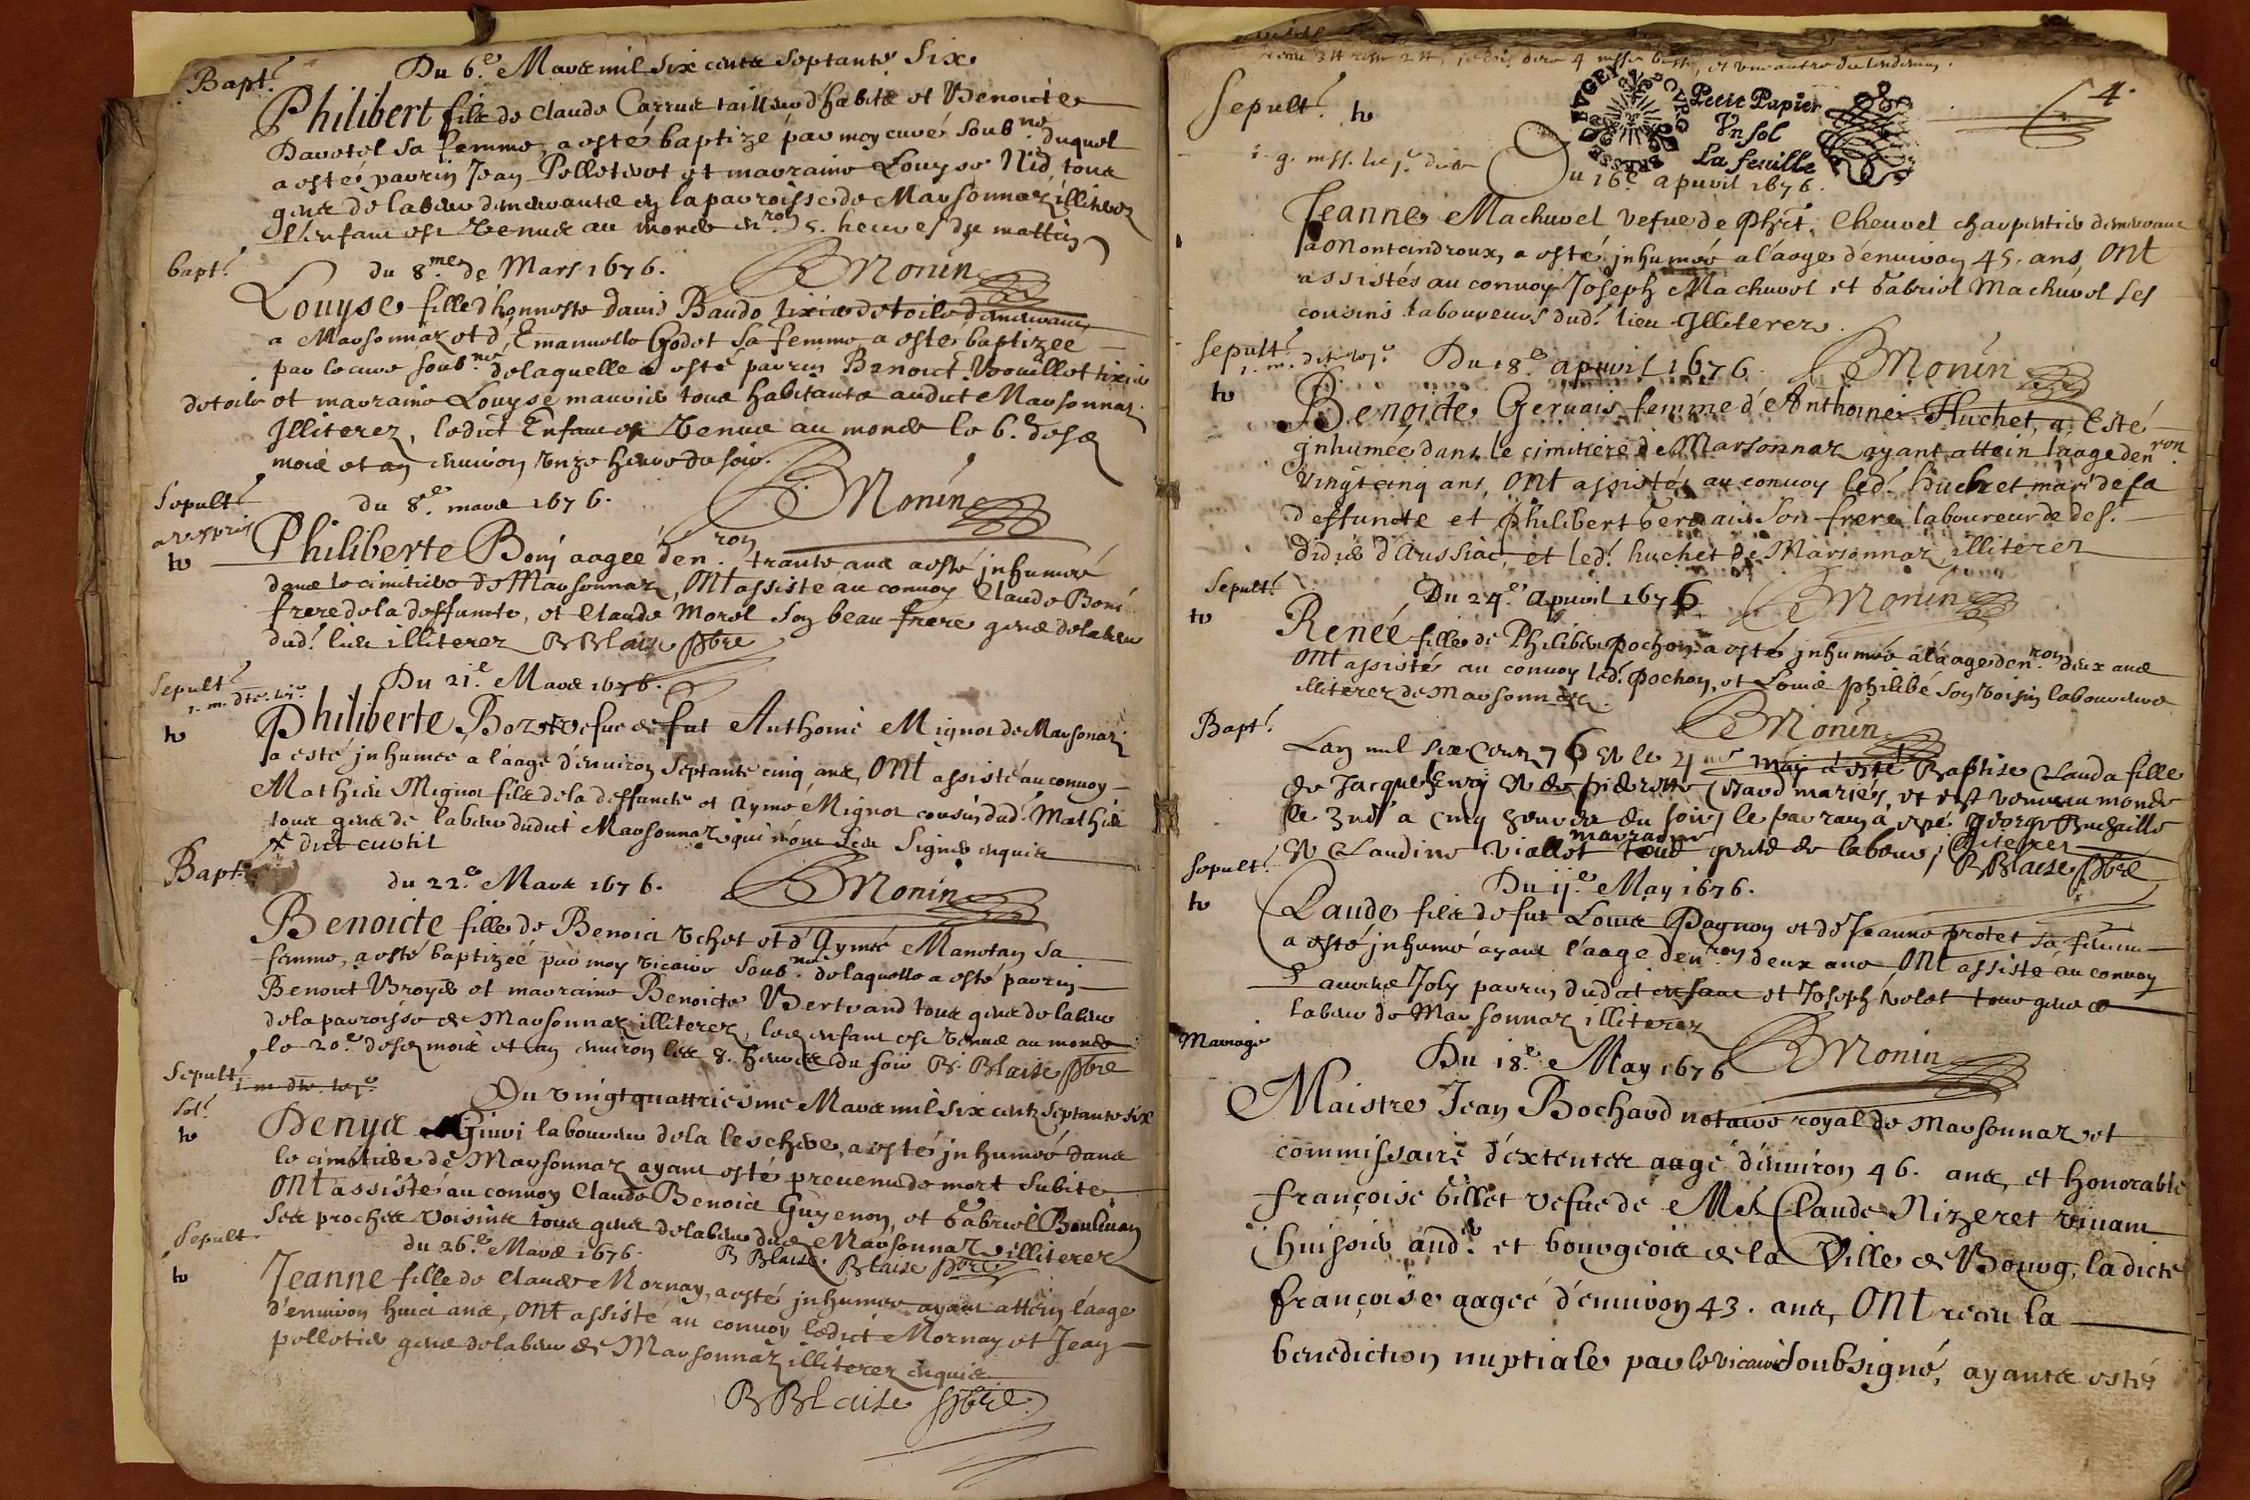 Bapt.
Du 6.e Mars mil six cents septante six
Philibert fils de Claude Carrua tailleur d'habits et Benoicte
Davotel sa femme, a esté baptizé par moy curé soub.né duquel
a esté parrin Jean Pelletivot et marraine Louyse Nid, tous
gens de labeur demeurants en la parroisse de Marsonnaz illiterez
L'enfant est venu au monde en.ron 5. heures du mattin
bapt.
du 8.me de Mars 1676. Monin
Louyse fille d'honneste Davis Baudo tixier de toile demeurant
a Marsonnaz et d'Emanuelle Godet sa femme a esté baptizée
par le curé soub.né de laquelle a esté parrin Benoict Vouillot tixier
de toile et marraine Louyse mauvis tous habitants audict Marsonnaz
Illiterez, ledict Enfant est venue au monde le 6.e desd.
mois et an environ unze heures du soir. Monin
Sepult.
du 8.e mars 1676.
to
Philiberte Boni aageé den.ron trante ans a esté inhumée
dans le cimitiere de Marsonnaz, Ont assisté au convoy Claude Boni
frere de la deffuncte, et Claude Morel son beau frere gens de labeur
dud. lieu illiterez B Blaise pbre
Sepult.
Du 21.e Mars 1676.
to
Philiberte Bozet vefve de fut Anthoine Mignot de Marsonnaz
a esté inhumee a l'aage d'environ septante cinq ans, Ont assisté au convoy
Mathieu Mignot fils de la deffuncte et Aymé Mignot cousin dud. Mathieu
tous gens de labeur dudict Marsonnaz qui n'ont sceu signer enquis
Bapt.
du 22.e Mars 1676. Monin
Benoicte fille de Benoict Vchet et d'Aymée Manetan sa
femme, a esté baptizeé par moy vicaire soub.né de laquelle a esté parrin
Benoict Broyer et marraine Benoicte Bertrand tous gens de labeur
de la parroisse de Marsonnaz illiterez, led. enfant est venue au monde
le 20.e desd. mois et an environ les 8. heures du soir B. Blaise pbre
Sepult.
Du vingt quattriesme Mars mil six cents septante six
to
Denys Givri laboureur de la Leschere, a esté inhumé dans
le cimitiere de Marsonnaz ayant esté prevenu de mort subite,
Ont assisté au convoy Claude Benoict Guyenon, et Gabriel Boulivan
ses proches voisins tous gens de labeur dud. Marsonnaz illiterez
Sepult.
du 26.e Mars 1676. B Blaise. Blaise pbre
to
Jeanne fille de Claude Mornay, a esté inhumee ayant attein l'aage
d'environ huict ans, Ont assisté au convoy ledict Mornay et Jean
pelletier gens de labeur de Marsonnaz illiterez enquis
B Blaise pbre.
4.
Sepult.
to
Petit Papier
Vn sol
La feuille
Du 16.e apuril 1676.
Jeanne Machuvel vefue de Phét. Cheuvel charpentier demeurant
a Montcindroux, a esté inhumée a l'aage d'environ 45. ans, Ont
assistés au convoy Joseph Machuvel et Gabriel Machuvel ses
cousins laboureurs dud. lieu Illiterez.
Sepult.
Du 18.e apuril 1676. Monin
to
Benoicte Gervais femme d'Anthoine Huchet, a Esté
inhumée dans le cimitiere de Marsonnaz ayant attein l'aage den.ron
vingt cinq ans, Ont assistés au convoy led. huchet mari de la
deffuncte et Philibert Gervais son frere laboureur de
Didier d'Aussiac, et led. huchet de Marsonnaz illiterez
Sepult.
Du 24.e apuril 1676 Monin
to
Reneé fille de Philibert pochon a esté inhumée a l'aage den.ron deux ans
Ont assistés au convoy led. pochon, et Louis philibé son voisin laboureurs
illiterez de Marsonnaz. Monin
Bapt.
Lan mil six cent 76 et le 4me may a esté Baptise Clauda fille
de Jacque henry et de pierrette mariés, et est venu au monde
le 3me a cinq heures du soir, le parrain a esté George Buchaille
et Claudine Viallet marraine tous gents de labeur, illiterez
B Blaise pbre
Sepult.
Du 11.e May 1676.
to
Claude fils de fut Louis Pagnon et de Jeanne protet sa femme
a esté inhumé ayant l'aage den.ron deux ans Ont assisté au convoy
Joly parrin dudict enfant et Joseph violet tous gens de
labeur de Marsonnaz illiterez
Mariage
Du 18.e May 1676 Monin
Maistre Jean Bochard notaire royal de Marsonnaz et
commissaire d'extentes aagé d'environ 46. ans, et honorable
françoise Gillet vefue de Me Claude Nizeret vivant
huissier aud. et bourgeois de la Ville de Bourg, ladicte
françoise aageé d'environ 43. ans, Ont receu la
benediction nuptiale par le vicaire soubsigné, ayants estés